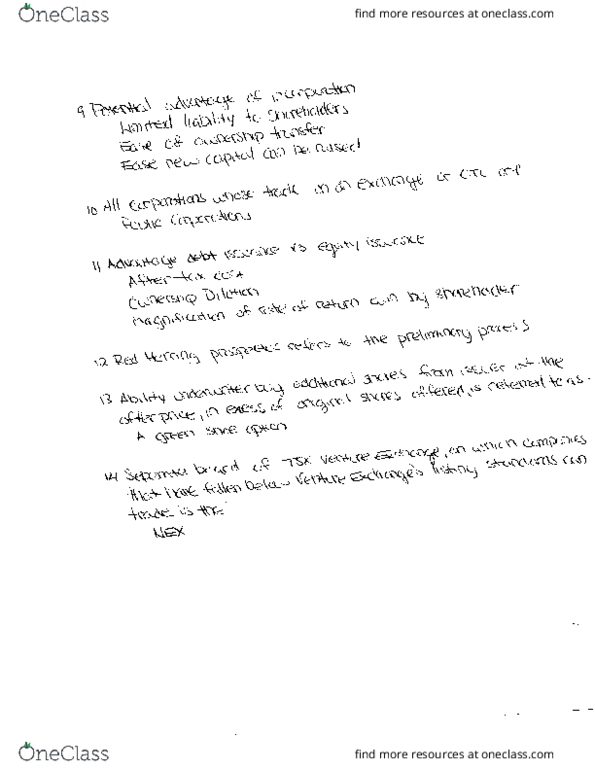 OneClass
find more resources at oneclass.com
9 Potential advantage of incorporation
Limited liability to shareholders
Ease of ownership transfer
Ease new capital can be raised
10 All corporations whose trade on an exchange or OTC are
Public Corporations
11 Advantage debt issuance vs equity issuance
After-tax cost
Ownership Dilution
Magnification of rate of return earn by shareholder
12 Red Herring prospectus refers to the preliminary process
13 Ability underwriter buy additional shares from issuer at the
offer price, in excess of original shares offered, is referred to as
A green shoe option
14 Separate board of TSX Venture Exchange, on which companies
that have fallen below Venture Exchange's listing standards can
trade is the
NEX
OneClass
find more resources at oneclass.com